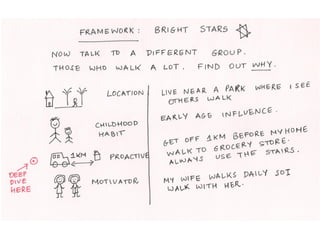 FRAMEWORK: BRIGHT STARS
NOW TALK TO A DIFFERENT GROUP.
THOSE WHO WALK A LOT. FIND OUT WHY.
LOCATION
LIVE NEAR A PARK WHERE I SEE
OTHERS WALK
CHILDHOOD
HABIT
EARLY AGE INFLUENCE.
1KM
PROACTIVE
GET OFF 1KM BEFORE MY HOME
WALK TO GROCERY STORE.
ALWAYS USE THE STAIRS.
DEEP
DIVE
HERE
MOTIVATOR
MY WIFE WALKS DAILY SO I
WALK WITH HER.